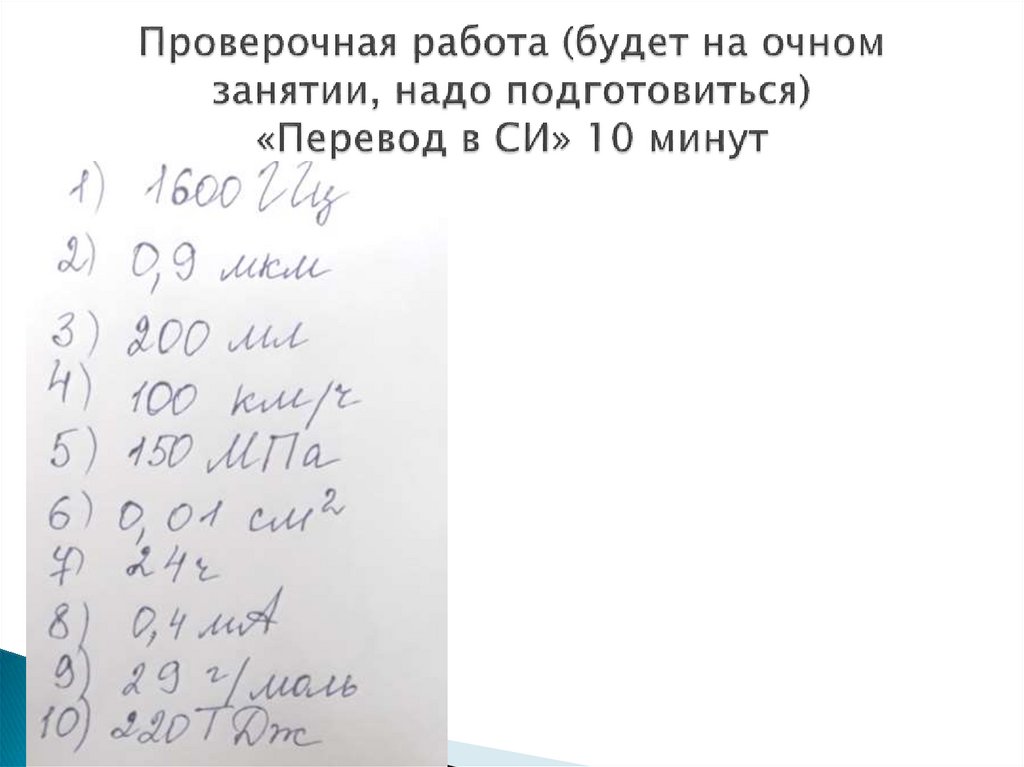 Проверочная работа (будет на очном
занятии, надо подготовиться)
«Перевод в СИ» 10 минут
1) 1600 ГГц
2) 0,9 мкм
3) 200 мл
4) 100 км/ч
5) 150 МПа
6) 0,01 см²
7) 24ч
8) 0,4 мА
9) 29 г/моль
10) 220 ТДж